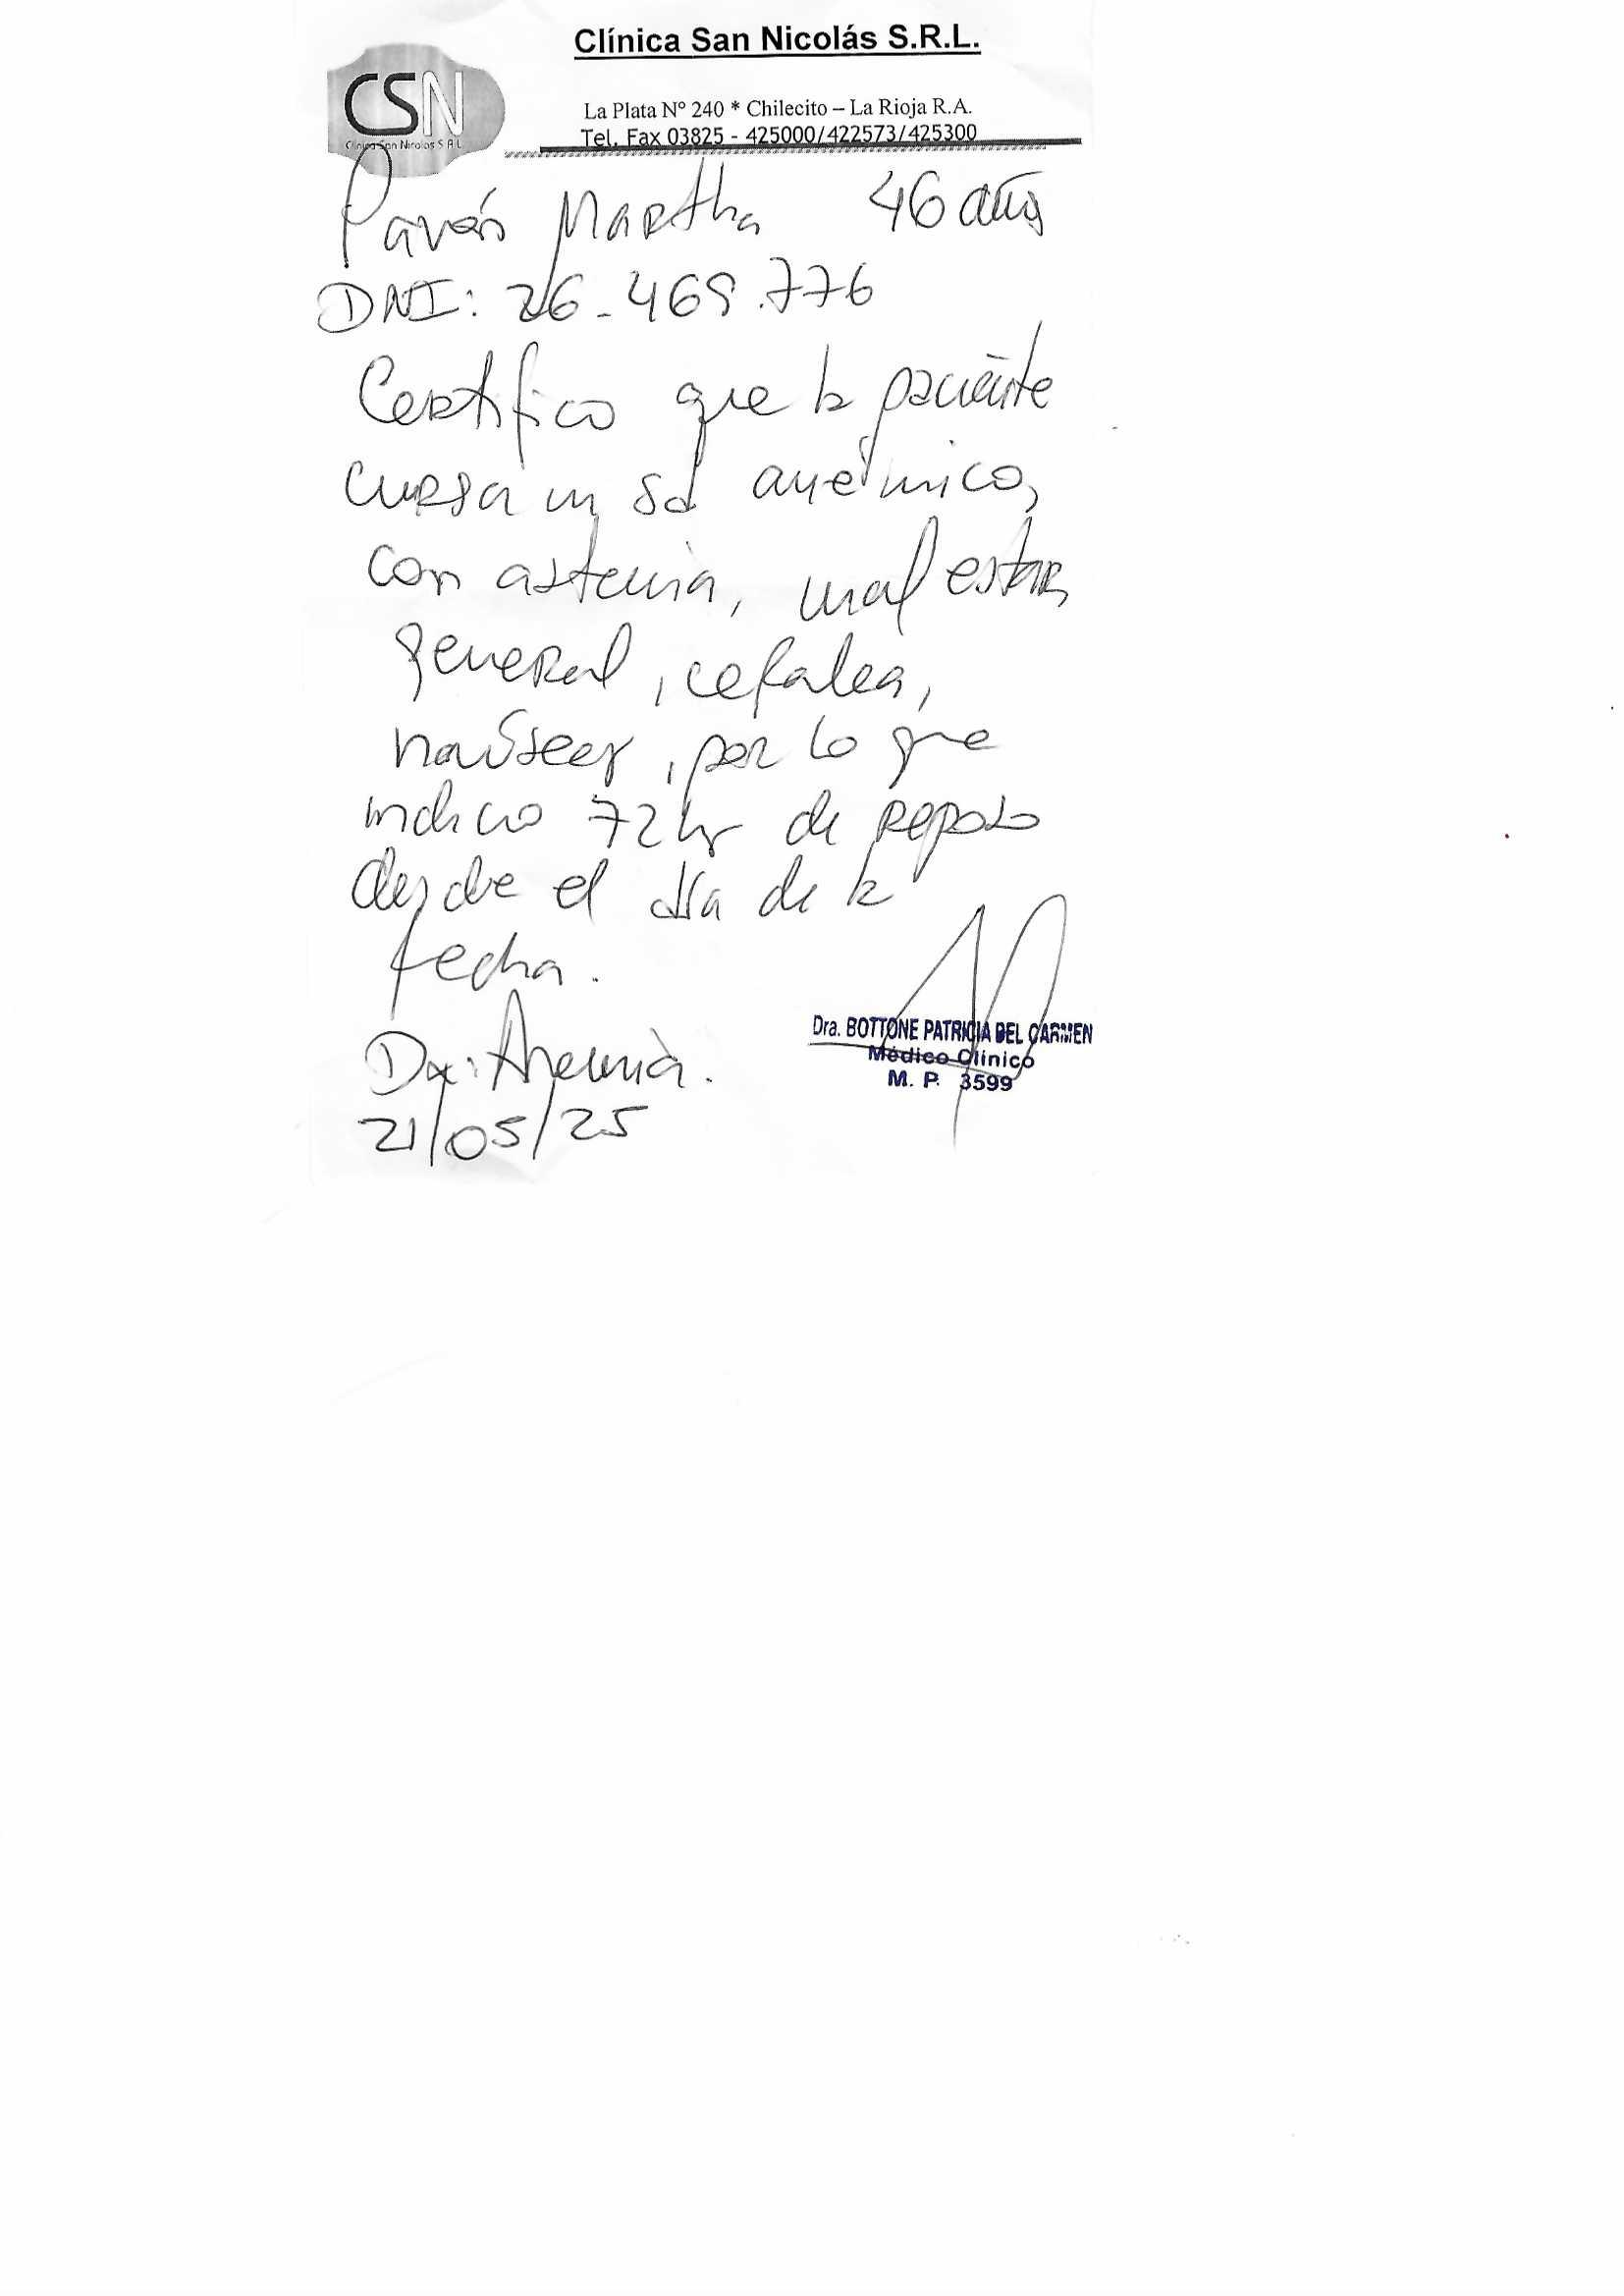 Clínica San Nicolás S.R.L.
CSN
Clínica San Nicolas S R L
La Plata Nº 240 * Chilecito – La Rioja R.A.
Tel. Fax 03825 - 425000/422573/425300
Pavón Martha 46 años
DNI: 26.469.776
Certifico que la paciente
cursa un Sd anémico,
con astenia, mal estar
general, cefalea,
nauseas, por lo que
indico 72 hs de reposo
desde el día de la
fecha.
Dx: Anemia.
21/05/25
Dra. BOTTONE PATRICIA DEL CARMEN
Médico Clínico
M. P. 3599